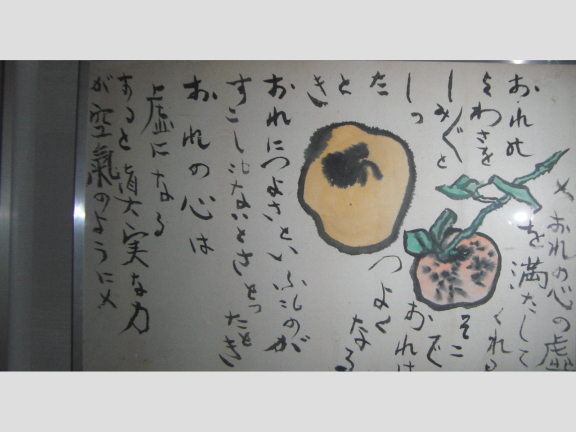 おれの
よわさを
しみ〲と
しっ
た
と
き
おれにつよさといふものが
すこしもないとさとったとき
おれの心は
虚になる
すると真実な力
が空氣のように〆
〆おれの心の虚
を満たして
くれる
そこ
で
おれは
つよく
なる